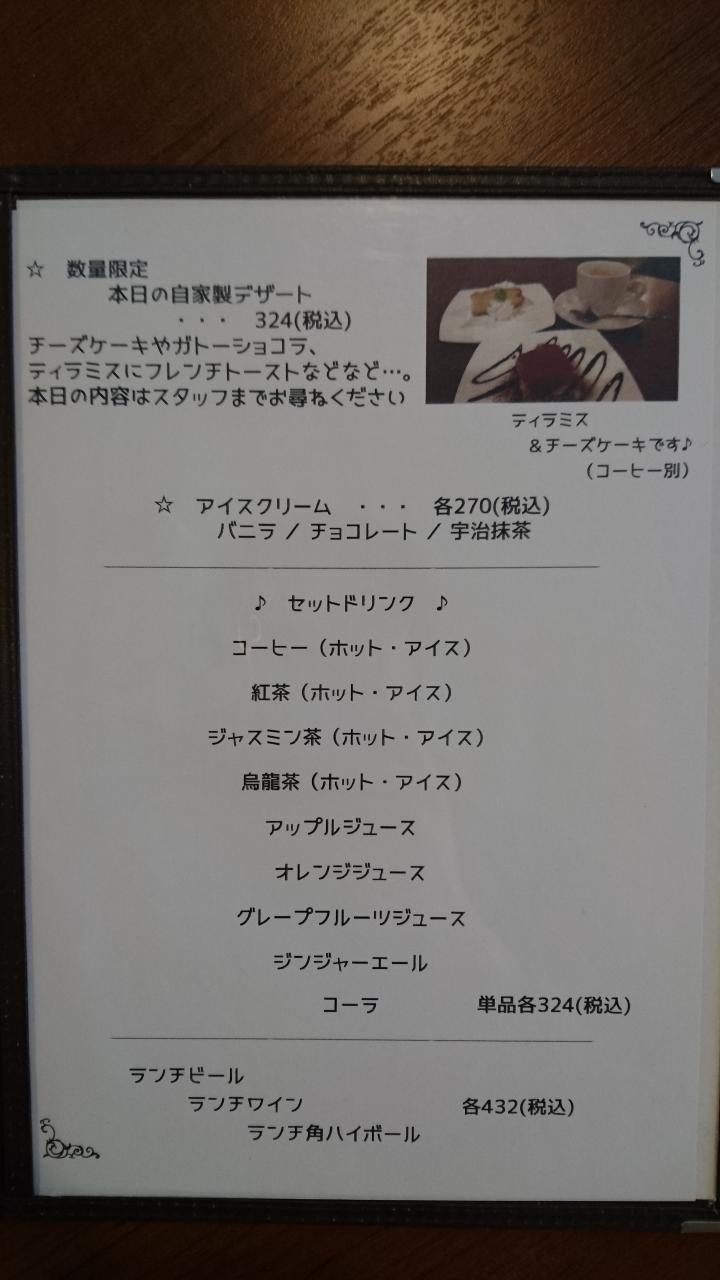 ☆ 数量限定
本日の自家製デザート
・・・ 324(税込)
チーズケーキやガトーショコラ、
ティラミスにフレンチトーストなどなど…。
本日の内容はスタッフまでお尋ねください
ティラミス
＆チーズケーキです♪
（コーヒー別）
☆ アイスクリーム ・・・ 各270(税込)
バニラ / チョコレート / 宇治抹茶
♪ セットドリンク ♪
コーヒー（ホット・アイス）
紅茶（ホット・アイス）
ジャスミン茶（ホット・アイス）
烏龍茶（ホット・アイス）
アップルジュース
オレンジジュース
グレープフルーツジュース
ジンジャーエール
コーラ 単品各324(税込)
ランチビール
ランチワイン 各432(税込)
ランチ角ハイボール